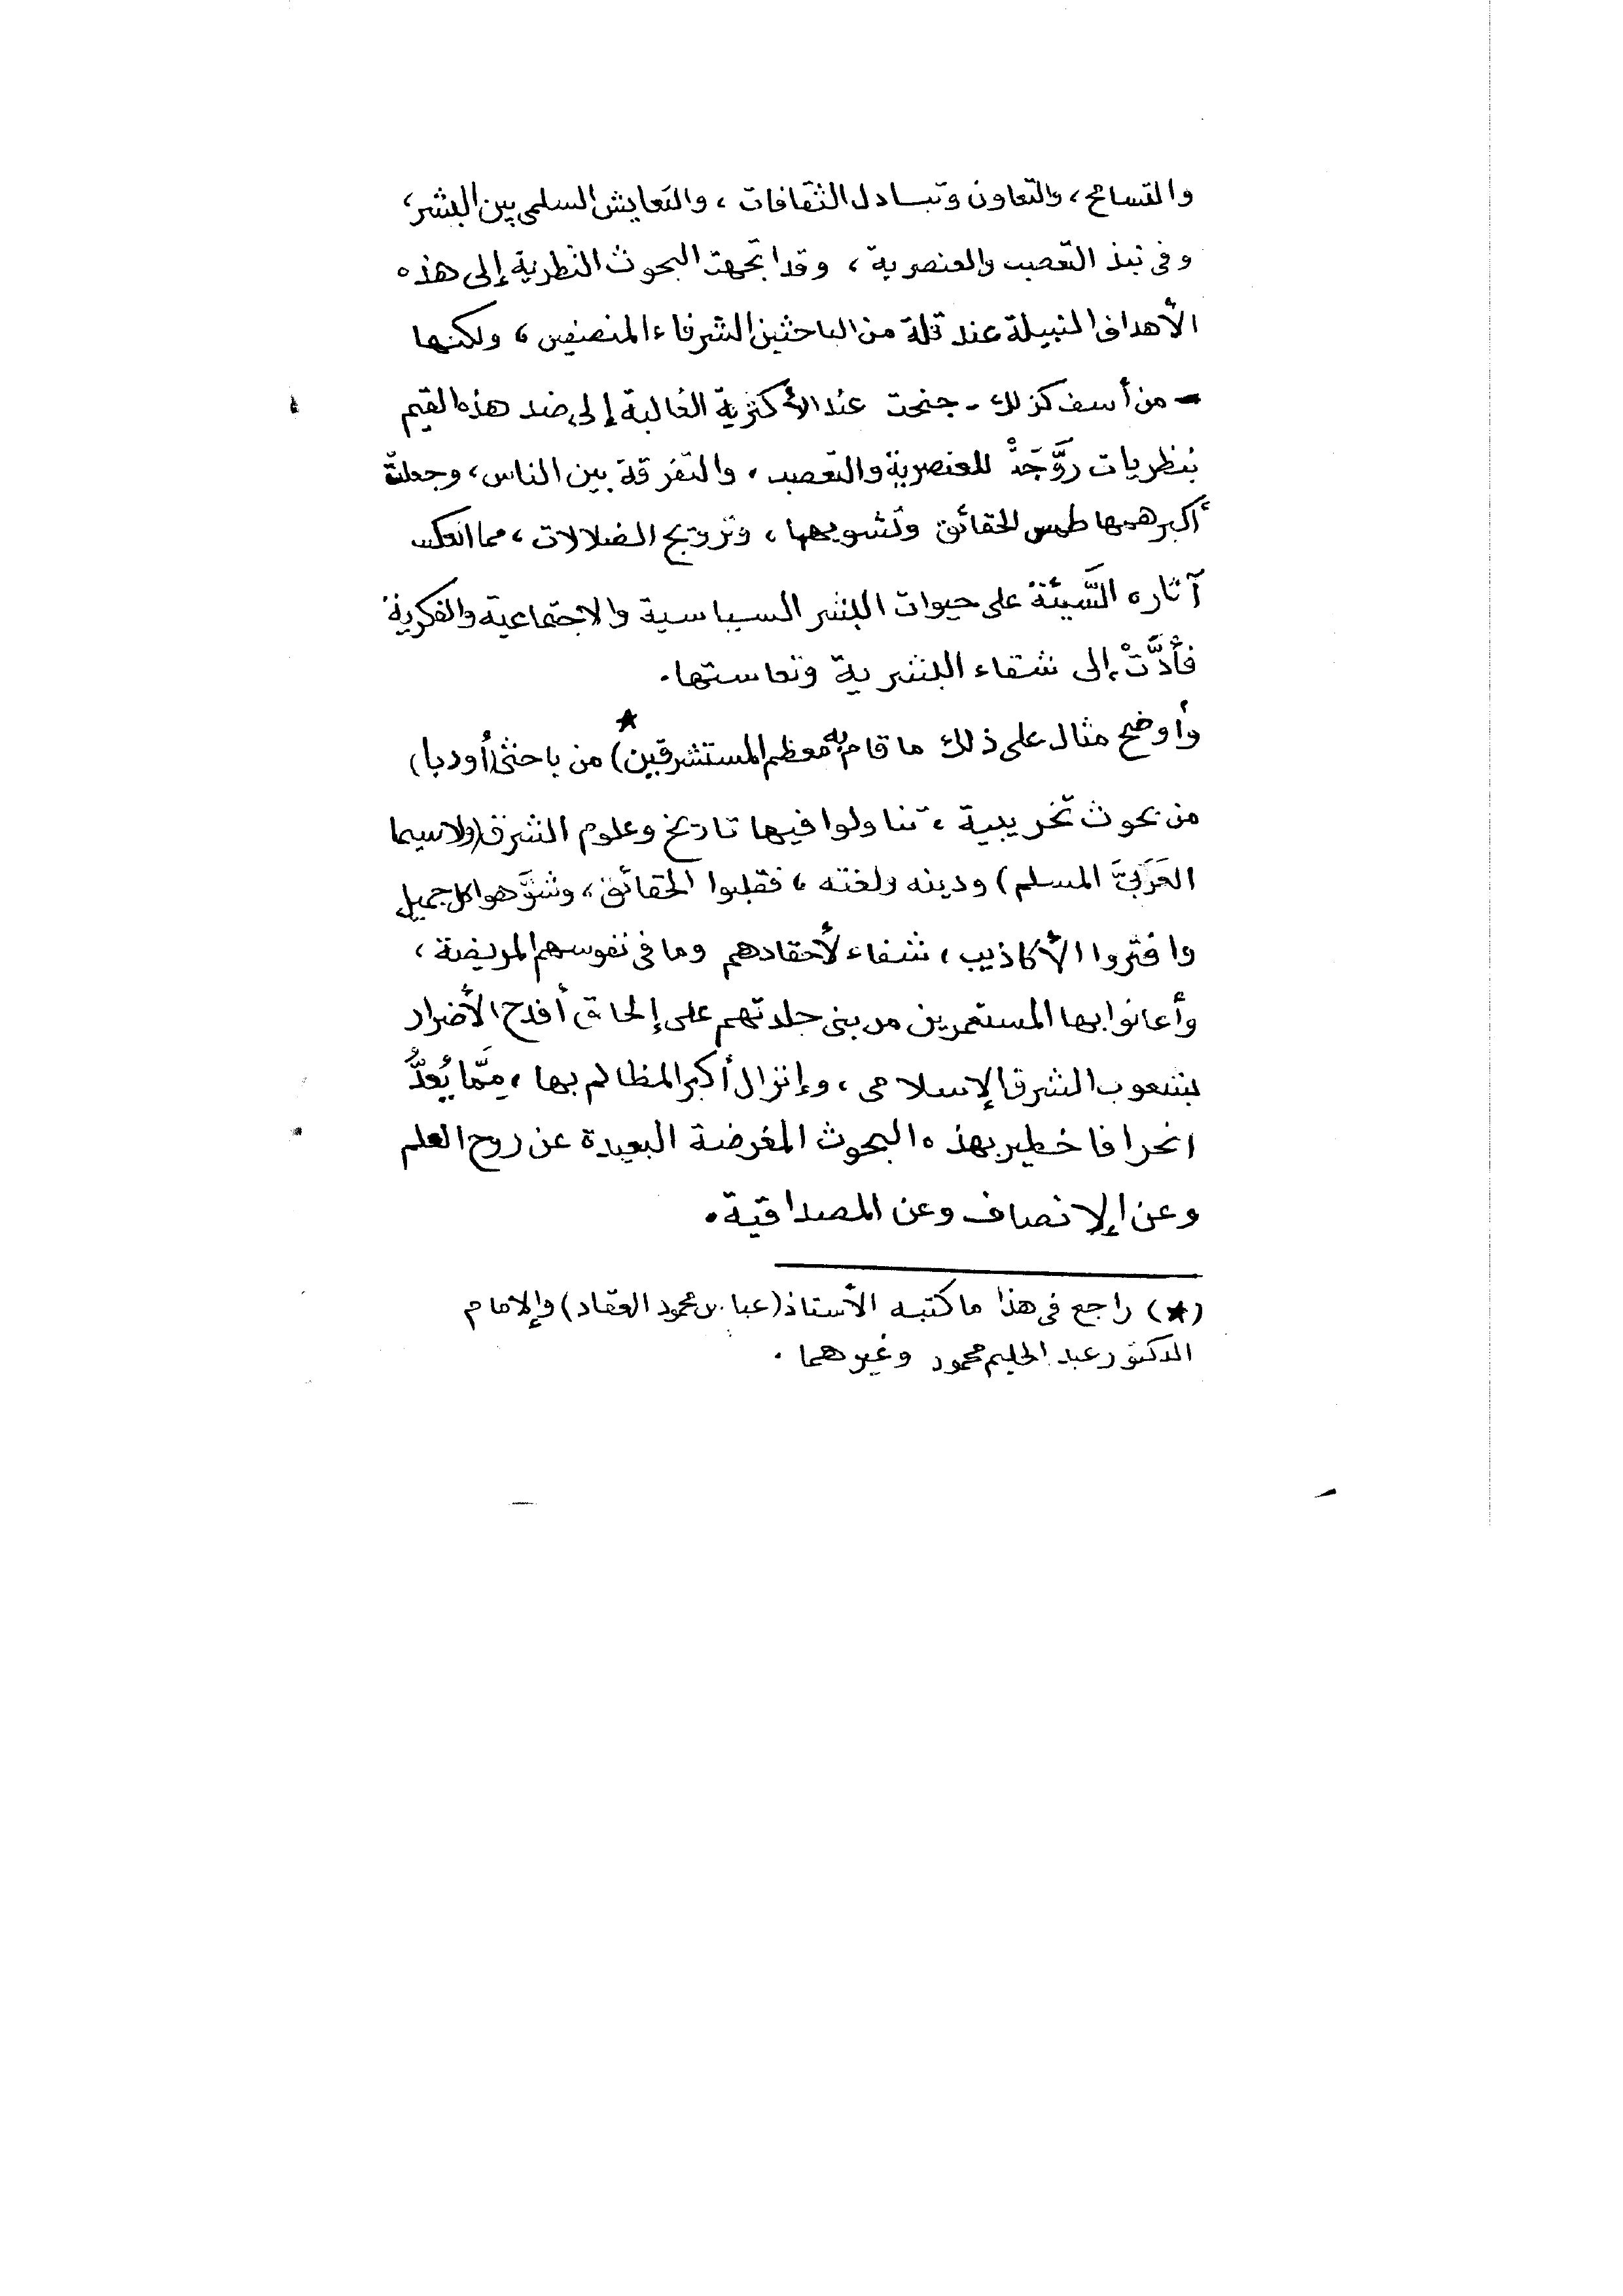 والتسامح، والتعاون وتبادل الثقافات، والتعايش السلمى بين البشر،
وفى نبذ التعصب والعنصرية، وقد اتجهت البحوث النظرية إلى هذه
الأهداف النبيلة عند قلة من الباحثين الشرفاء المنصفين، ولكنها
- من أسف كذلك - جنحت عند الأكثرية الغالبة إلى ضد هذه القيم
بنظريات روَّجَتْ للعنصرية والتعصب، والتفرقة بين الناس، وجعلتْ
أكبر همها طمس الحقائق وتشويهها، وترويج الضلالات، مما انعكست
آثاره السَّيئة على حيوات البشر السياسية والاجتماعية والفكرية
فأَدَّتْ إلى شقاء البشرية وتعاستها.
وأوضح مثال على ذلك ما قام به معظم المستشرقين★) من باحثى (أوربا)
من بحوث تخريبية، تناولوا فيها تاريخ وعلوم الشرق (ولاسيما
العَرَبىَّ المسلم) ودينه ولغته، فقلبوا الحقائق، وشوَّهوا كل جميل
وافتروا الأكاذيب، شفاء لأحقادهم وما فى نفوسهم المريضة،
وأعانوا بها المستعمرين من بنى جلدتهم على إلحاق أفدح الأضرار
بشعوب الشرق الإسلامى، وإنزال أكبر المظالم بها، مِمَّا يُعدُّ
انحرافا خطير بهذه البحوث المغرضة البعيدة عن روح العلم
وعن الإنصاف وعن المصداقية.
(★) راجع فى هذا ما كتبه الأستاذ (عباس محمود العقاد) والإمام
الدكتور عبد الحليم محمود وغيرهما.